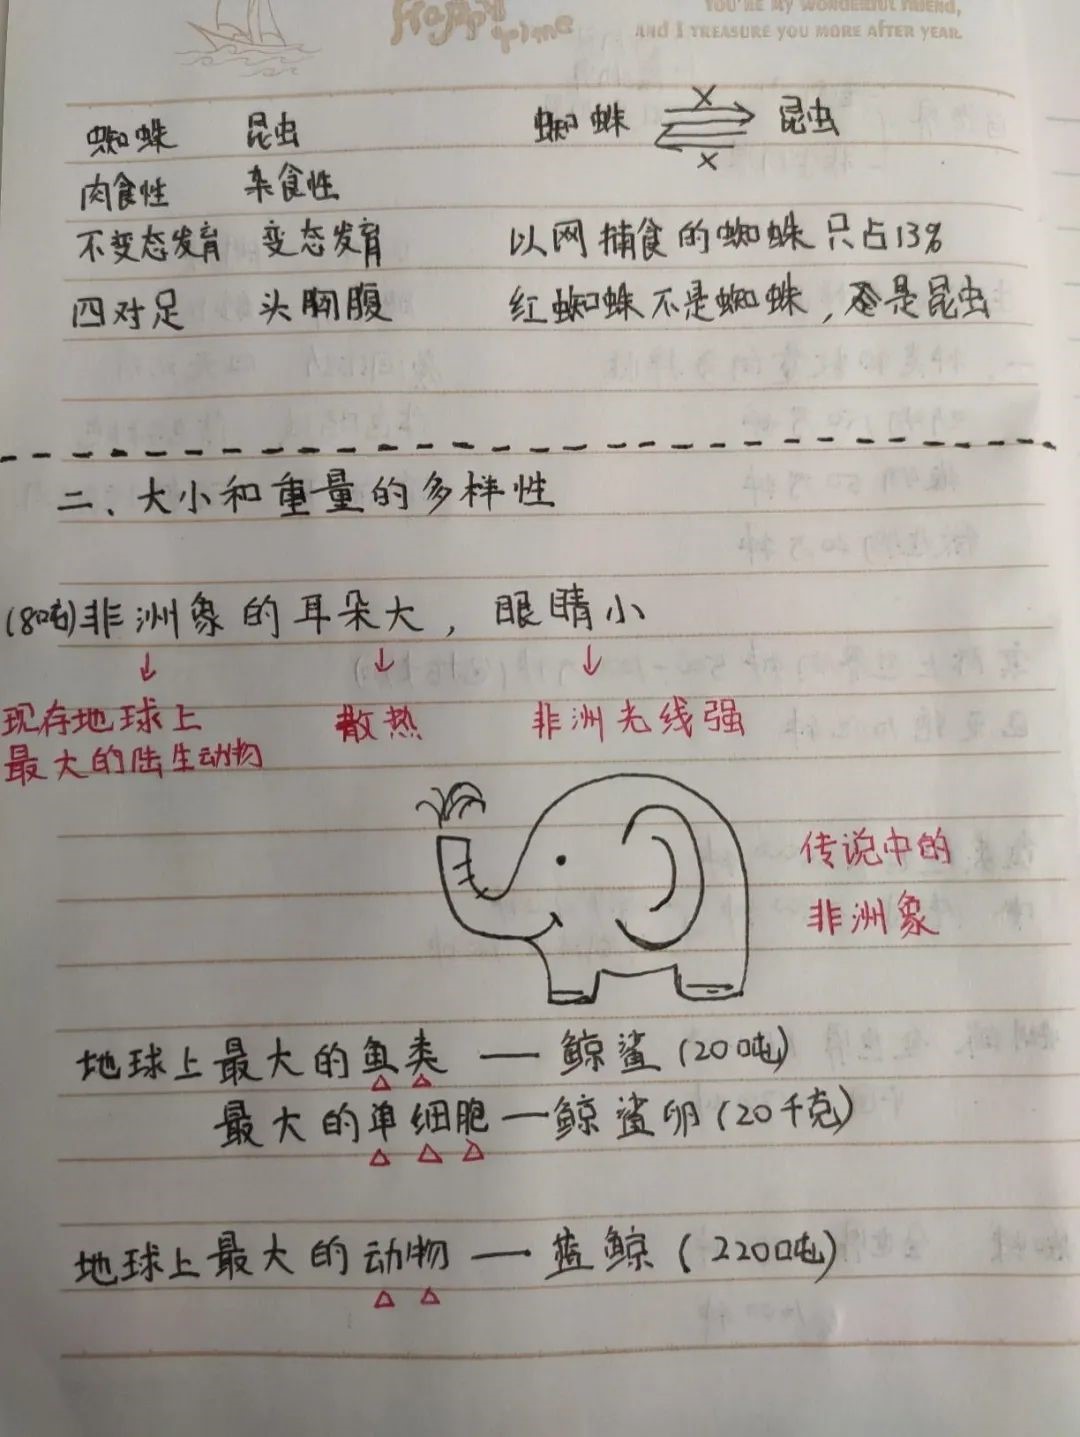 Happy Time
YOU'RE MY WONDERFUL FRIEND,
AND I TREASURE YOU MORE AFTER YEAR.
蜘蛛 昆虫 蜘蛛 X 昆虫
X
肉食性 杂食性
不变态发育 变态发育 以网捕食的蜘蛛只占13%
四对足 头胸腹 红蜘蛛不是蜘蛛，不是昆虫
二、大小和重量的多样性
(8吨)非洲象的耳朵大，眼睛小
↓ ↓ ↓
现存地球上 散热 非洲光线强
最大的陆生动物
传说中的
非洲象
地球上最大的鱼类 — 鲸鲨(20吨)
最大的单细胞—鲸鲨卵(20千克)
地球上最大的动物 — 蓝鲸(220吨)